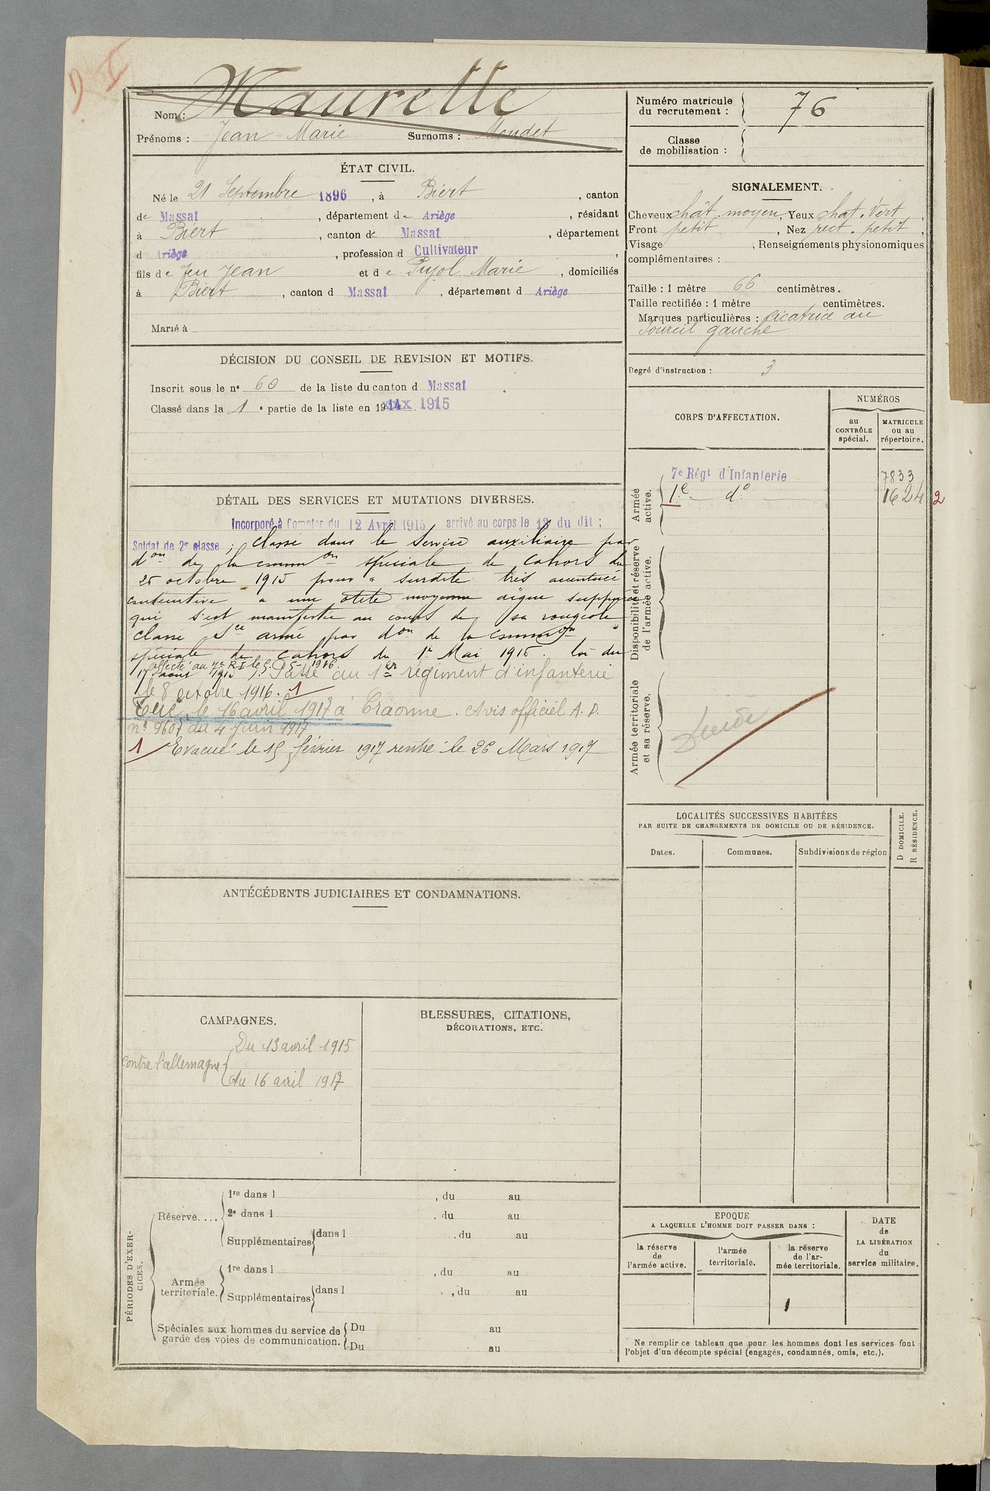 Nom : Maurette
Prénoms : Jean Marie Surnoms :
Numéro matricule du recrutement : 76
Classe de mobilisation :
ÉTAT CIVIL.
Né le 21 Septembre 1896, à Biert, canton
de Massat, département de Ariège, résidant
à Biert, canton de Massat, département
d Ariège, profession d Cultivateur
fils de feu Jean et de Pujol Marie, domiciliés
à Biert, canton d Massat, département d Ariège
Marié à
SIGNALEMENT.
Cheveux chât. moyen, Yeux chat. Vert,
Front petit, Nez rect. petit,
Visage , Renseignements physionomiques
complémentaires :
Taille : 1 mètre 66 centimètres.
Taille rectifiée : 1 mètre centimètres.
Marques particulières : cicatrice au
sourcil gauche
Degré d'instruction : 3
DÉCISION DU CONSEIL DE REVISION ET MOTIFS.
Inscrit sous le n° 60 de la liste du canton d Massat
Classé dans la 1e partie de la liste en 1915
CORPS D'AFFECTATION.
NUMÉROS
au CONTRÔLE spécial.
MATRICULE ou au répertoire.
Armée active.
7e Régt d'Infanterie 7833
1e d° 1624 2
Disponibilité et réserve de l'armée active.
Armée territoriale et sa réserve.
DÉTAIL DES SERVICES ET MUTATIONS DIVERSES.
Incorporé à Compter du 12 Avril 1915 arrivé au corps le 13 du dit ;
Soldat de 2e classe ; Classé dans le Service auxiliaire par
don de la comm on spéciale de Cahors du
25 octobre 1915 pour " surdité très accentuée
consécutive à une otite moyenne aigue suppurée
qui s'est manifestée au cours de sa rougeole "
Classé Sce armé par don de la Comm on
spéciale de Cahors du 1r Mai 1915. loi du
17 aout 1915 affecté au 7e R.I. le 5-5-1916. Passé au 1er régiment d'infanterie
le 8 octobre 1916. 1
Tué, le 16 avril 1917 à Craonne. Avis officiel A.D.
n° 9607 du 4 juin 1917
1 Evacué le 15 février 1917 rentré le 26 Mars 1917
LOCALITÉS SUCCESSIVES HABITÉES
PAR SUITE DE CHANGEMENTS DE DOMICILE OU DE RÉSIDENCE.
Dates. Communes. Subdivisions de région
D DOMICILE.
R RÉSIDENCE.
ANTÉCÉDENTS JUDICIAIRES ET CONDAMNATIONS.
CAMPAGNES.
Contre l'allemagne
Du 13 avril 1915
Au 16 avril 1917
BLESSURES, CITATIONS,
DÉCORATIONS, ETC.
PÉRIODES D'EXERCICES.
Réserve....
1re dans l , du au
2e dans l , du au
Supplémentaires dans l , du au
Armée territoriale.
1re dans l , du au
Supplémentaires dans l , du au
Spéciales aux hommes du service de
garde des voies de communication.
Du au
Du au
EPOQUE
A LAQUELLE L'HOMME DOIT PASSER DANS :
la réserve de l'armée active.
l'armée territoriale.
la réserve de l'armée territoriale.
DATE de LA LIBÉRATION du service militaire.
Ne remplir ce tableau que pour les hommes dont les services font
l'objet d'un décompte spécial (engagés, condamnés, omis, etc.).